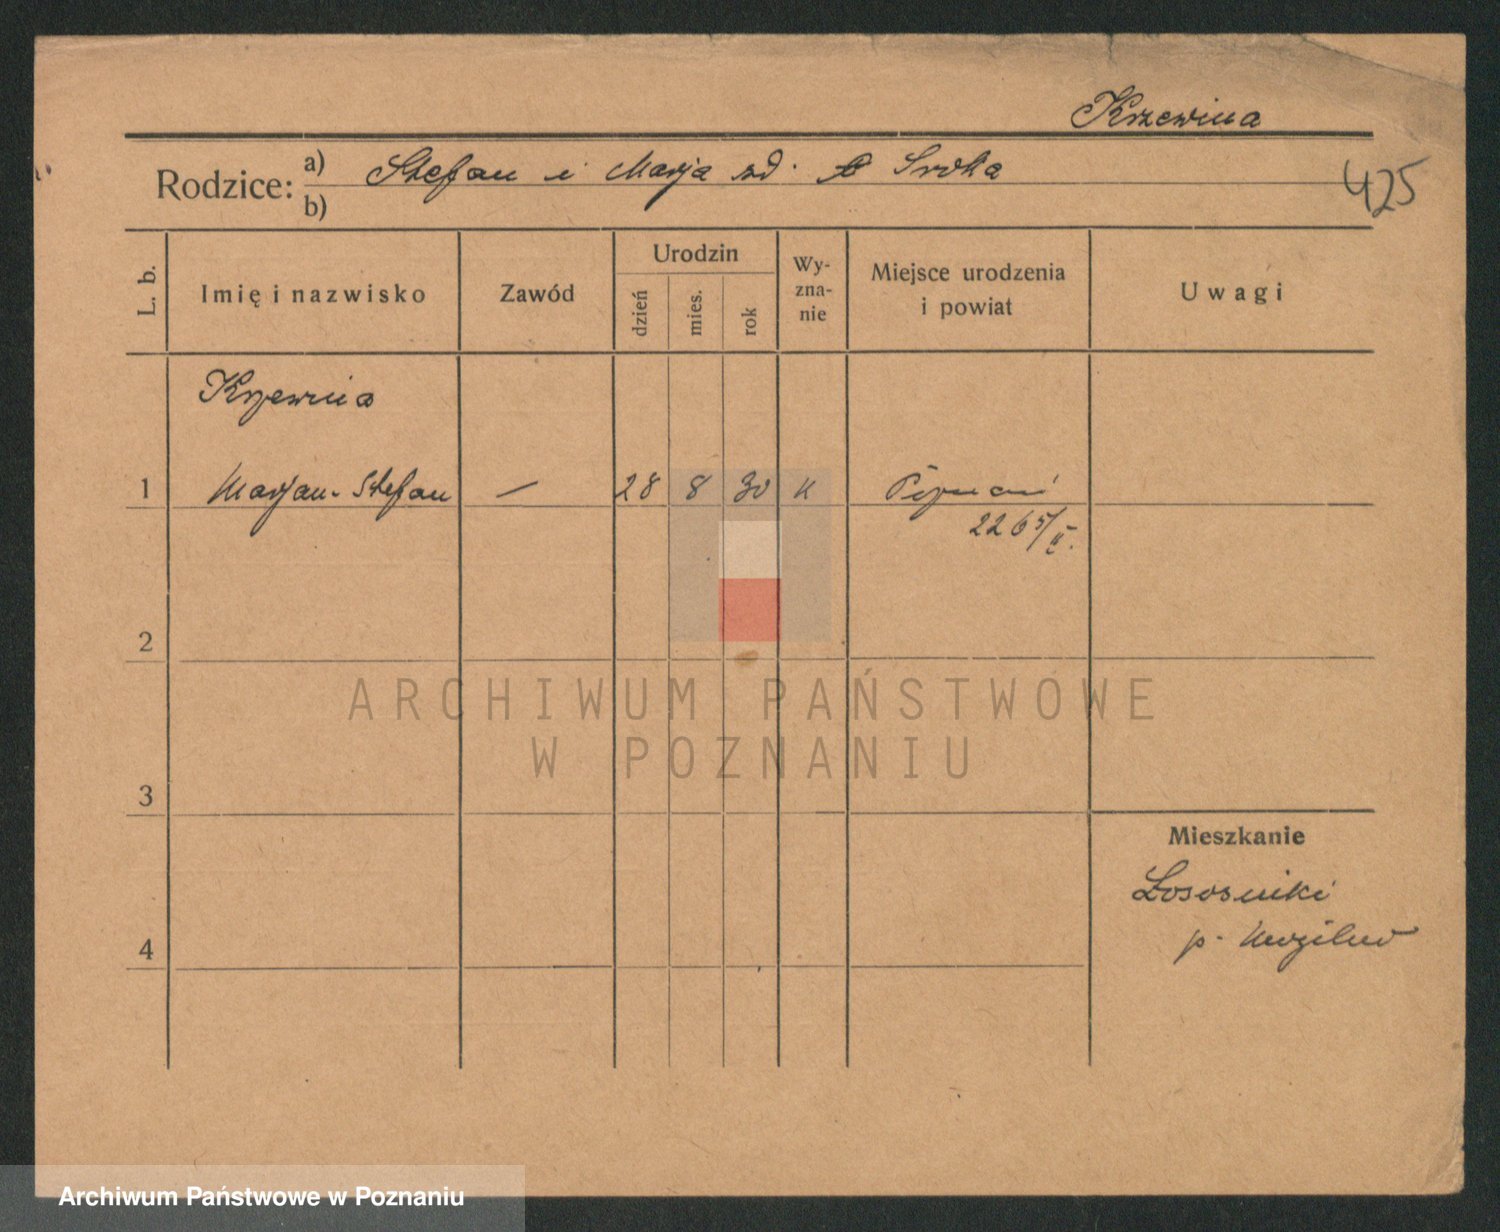 Krzewina
Rodzice: a) Stefan i Marja zd. Sroka
b)
425
L. b.
Imię i nazwisko
Zawód
Urodzin
dzień
mies.
rok
Wy-
zna-
nie
Miejsce urodzenia
i powiat
Uwagi
Krzewina
1 Marjan-Stefan — 28 8 30 k Poznań
2265/II.
2
ARCHIWUM PAŃSTWOWE
W POZNANIU
3
Mieszkanie
Łososniki
p. Mogilno
4
Archiwum Państwowe w Poznaniu